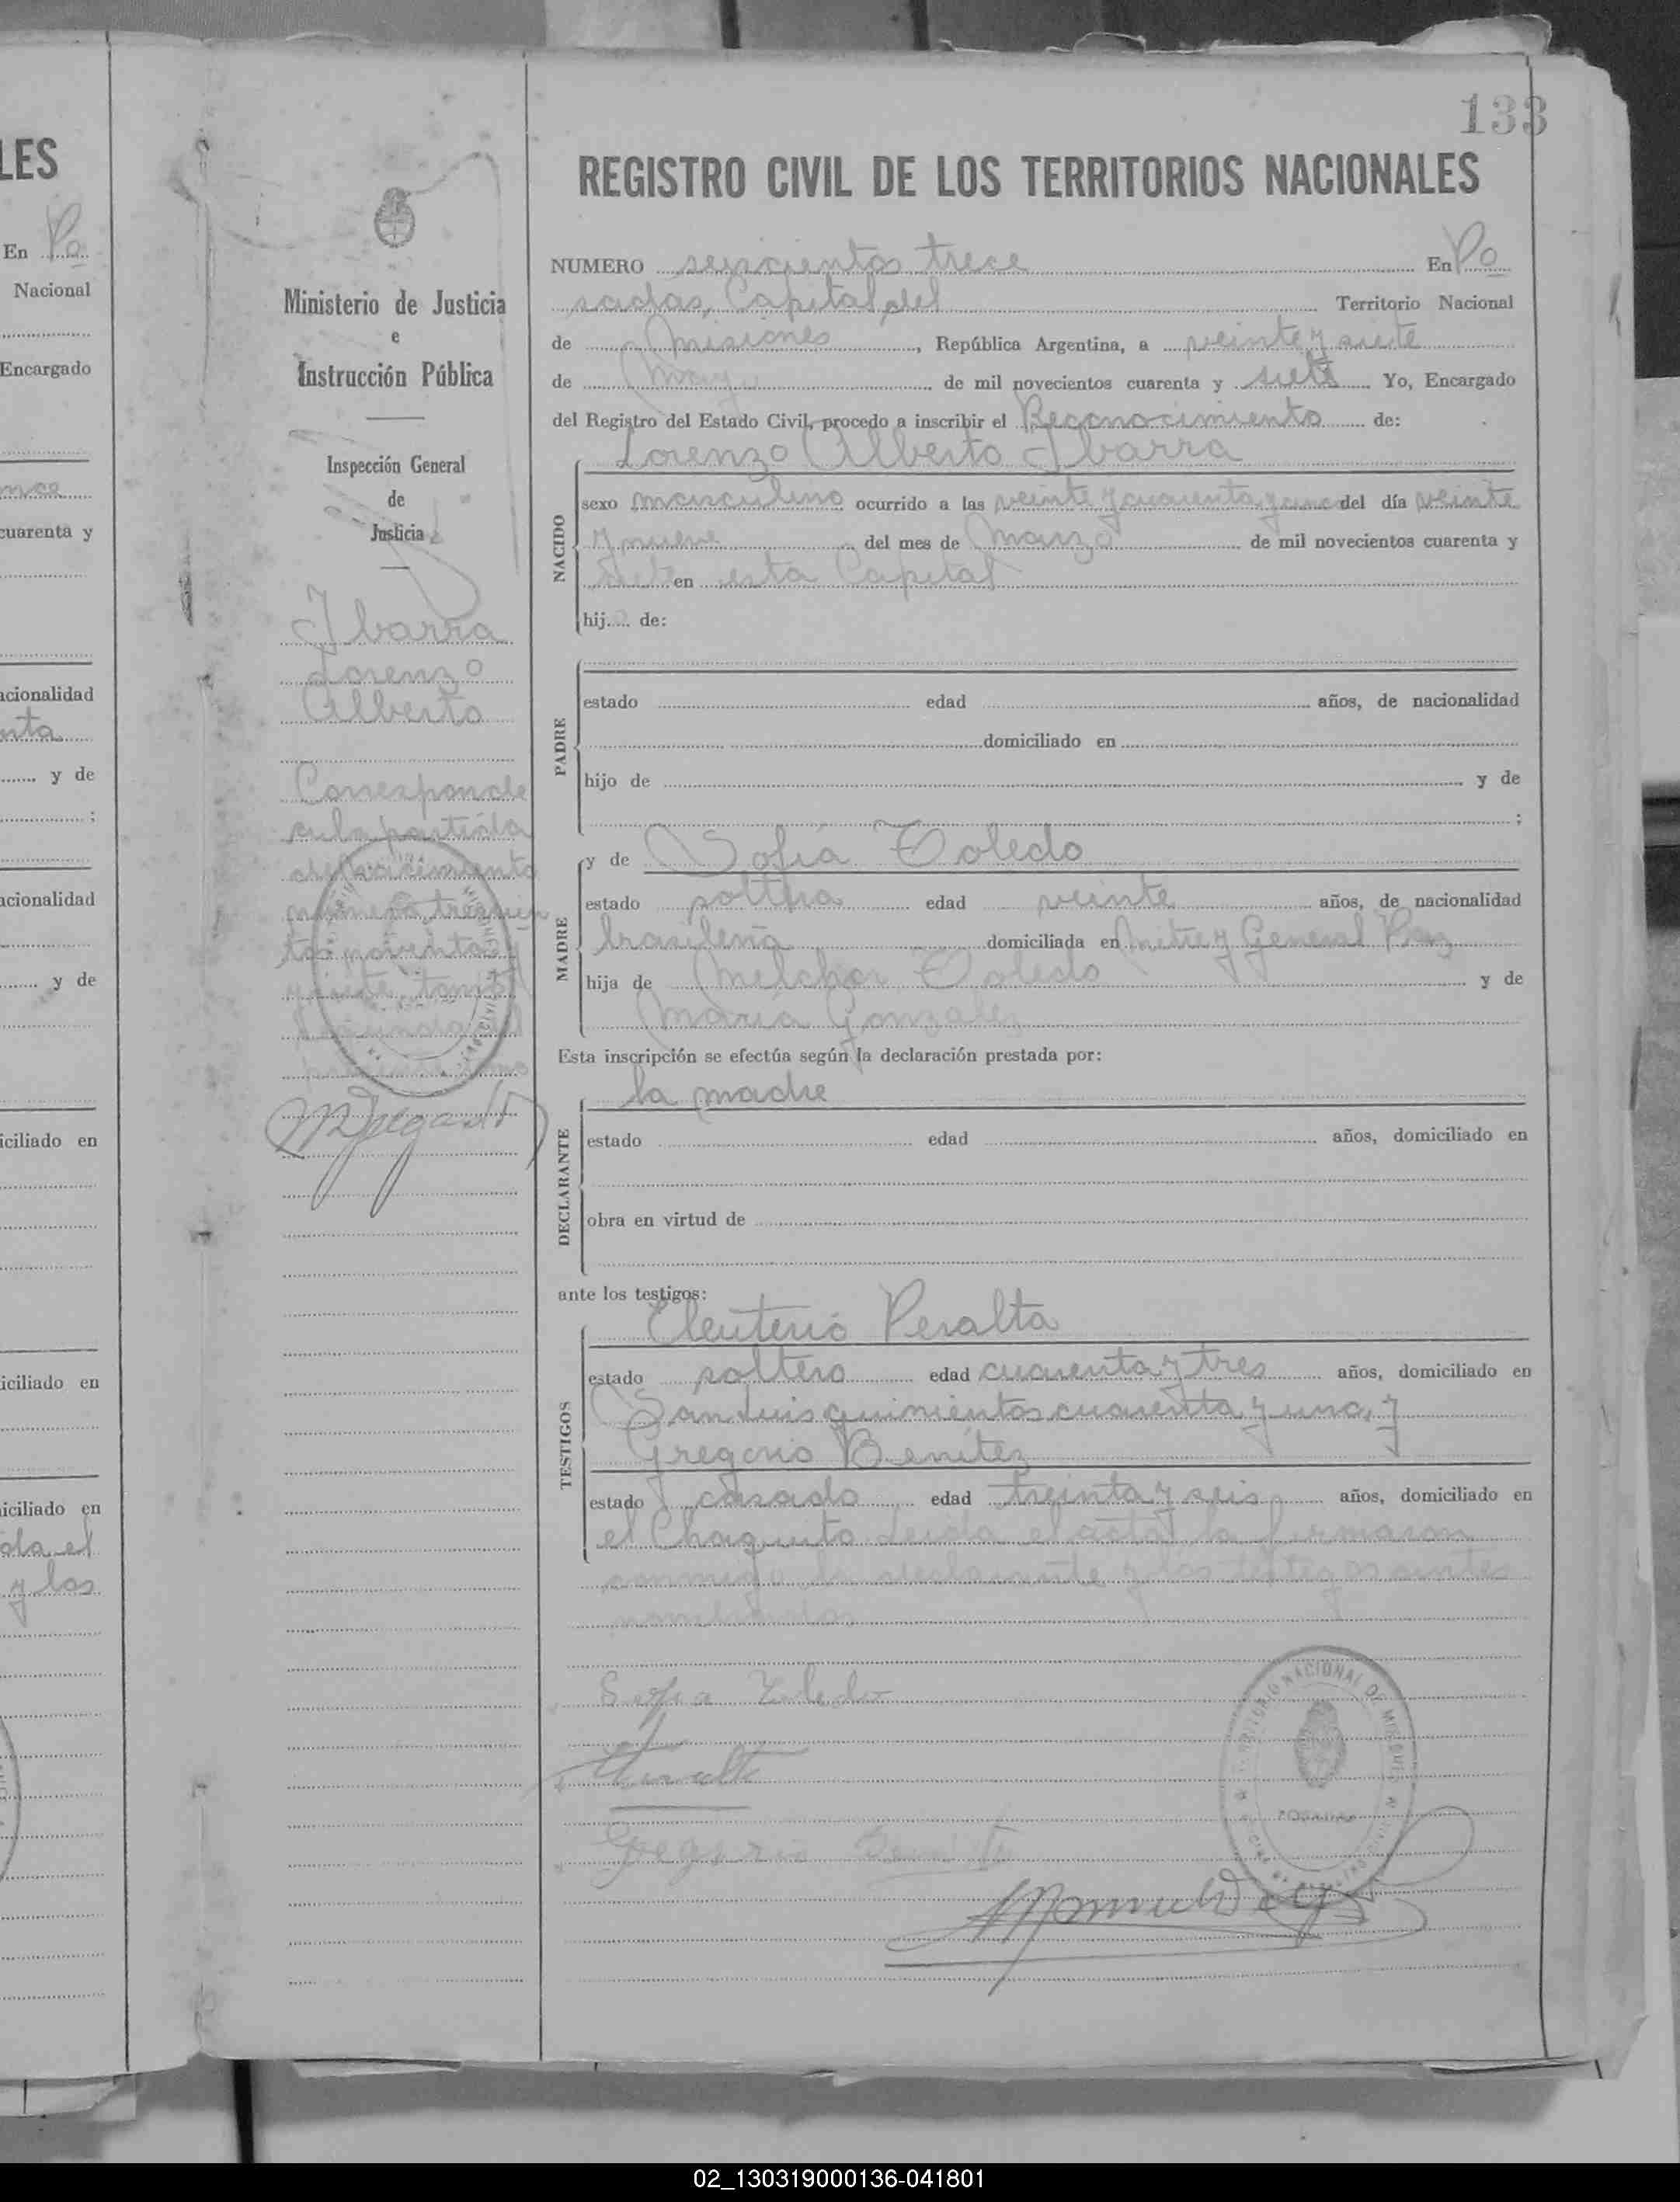 LES
En Po
Nacional
Encargado
cuarenta y
acionalidad
y de
;
acionalidad
y de
iciliado en
iciliado en
iciliado en
ola el
y los
Ministerio de Justicia
e
Instrucción Pública
Inspección General
de
Justicia
Ibarra
Lorenzo
Alberto
Corresponde
a la partida
de nacimiento
número trescien
tos noventa y
y siete, tomo
133
REGISTRO CIVIL DE LOS TERRITORIOS NACIONALES
NUMERO seiscientos trece En Po
sadas, Capital del Territorio Nacional
de Misiones, República Argentina, a veinte y siete
de Mayo de mil novecientos cuarenta y siete Yo, Encargado
del Registro del Estado Civil, procedo a inscribir el Reconocimiento de:
Lorenzo Alberto Ibarra
NACIDO
sexo masculino ocurrido a las veinte y cuarenta y una del día veinte
y nueve del mes de Marzo de mil novecientos cuarenta y
siete en esta Capital
hijo de:
PADRE
estado edad años, de nacionalidad
domiciliado en
hijo de y de
;
MADRE
y de Sofia Toledo
estado soltera edad veinte años, de nacionalidad
brasileña domiciliada en Mitre y General Paz
hija de Melchor Toledo y de
María Gonzalez
Esta inscripción se efectúa según la declaración prestada por:
la madre
DECLARANTE
estado edad años, domiciliado en
obra en virtud de
ante los testigos:
Eleuterio Peralta
TESTIGOS
estado soltero edad cuarenta y tres años, domiciliado en
San Luis quinientos cuarenta y uno, y
Gregorio Benítez
estado casado edad treinta y seis años, domiciliado en
el Chaquito Leída el acta la firmaron
conmigo la declarante y los testigos antes
nombrados
Sofia Toledo
Peralta
Gregorio Benitez
TERRITORIO NACIONAL DE MISIONES
POSADAS
02_130319000136-041801